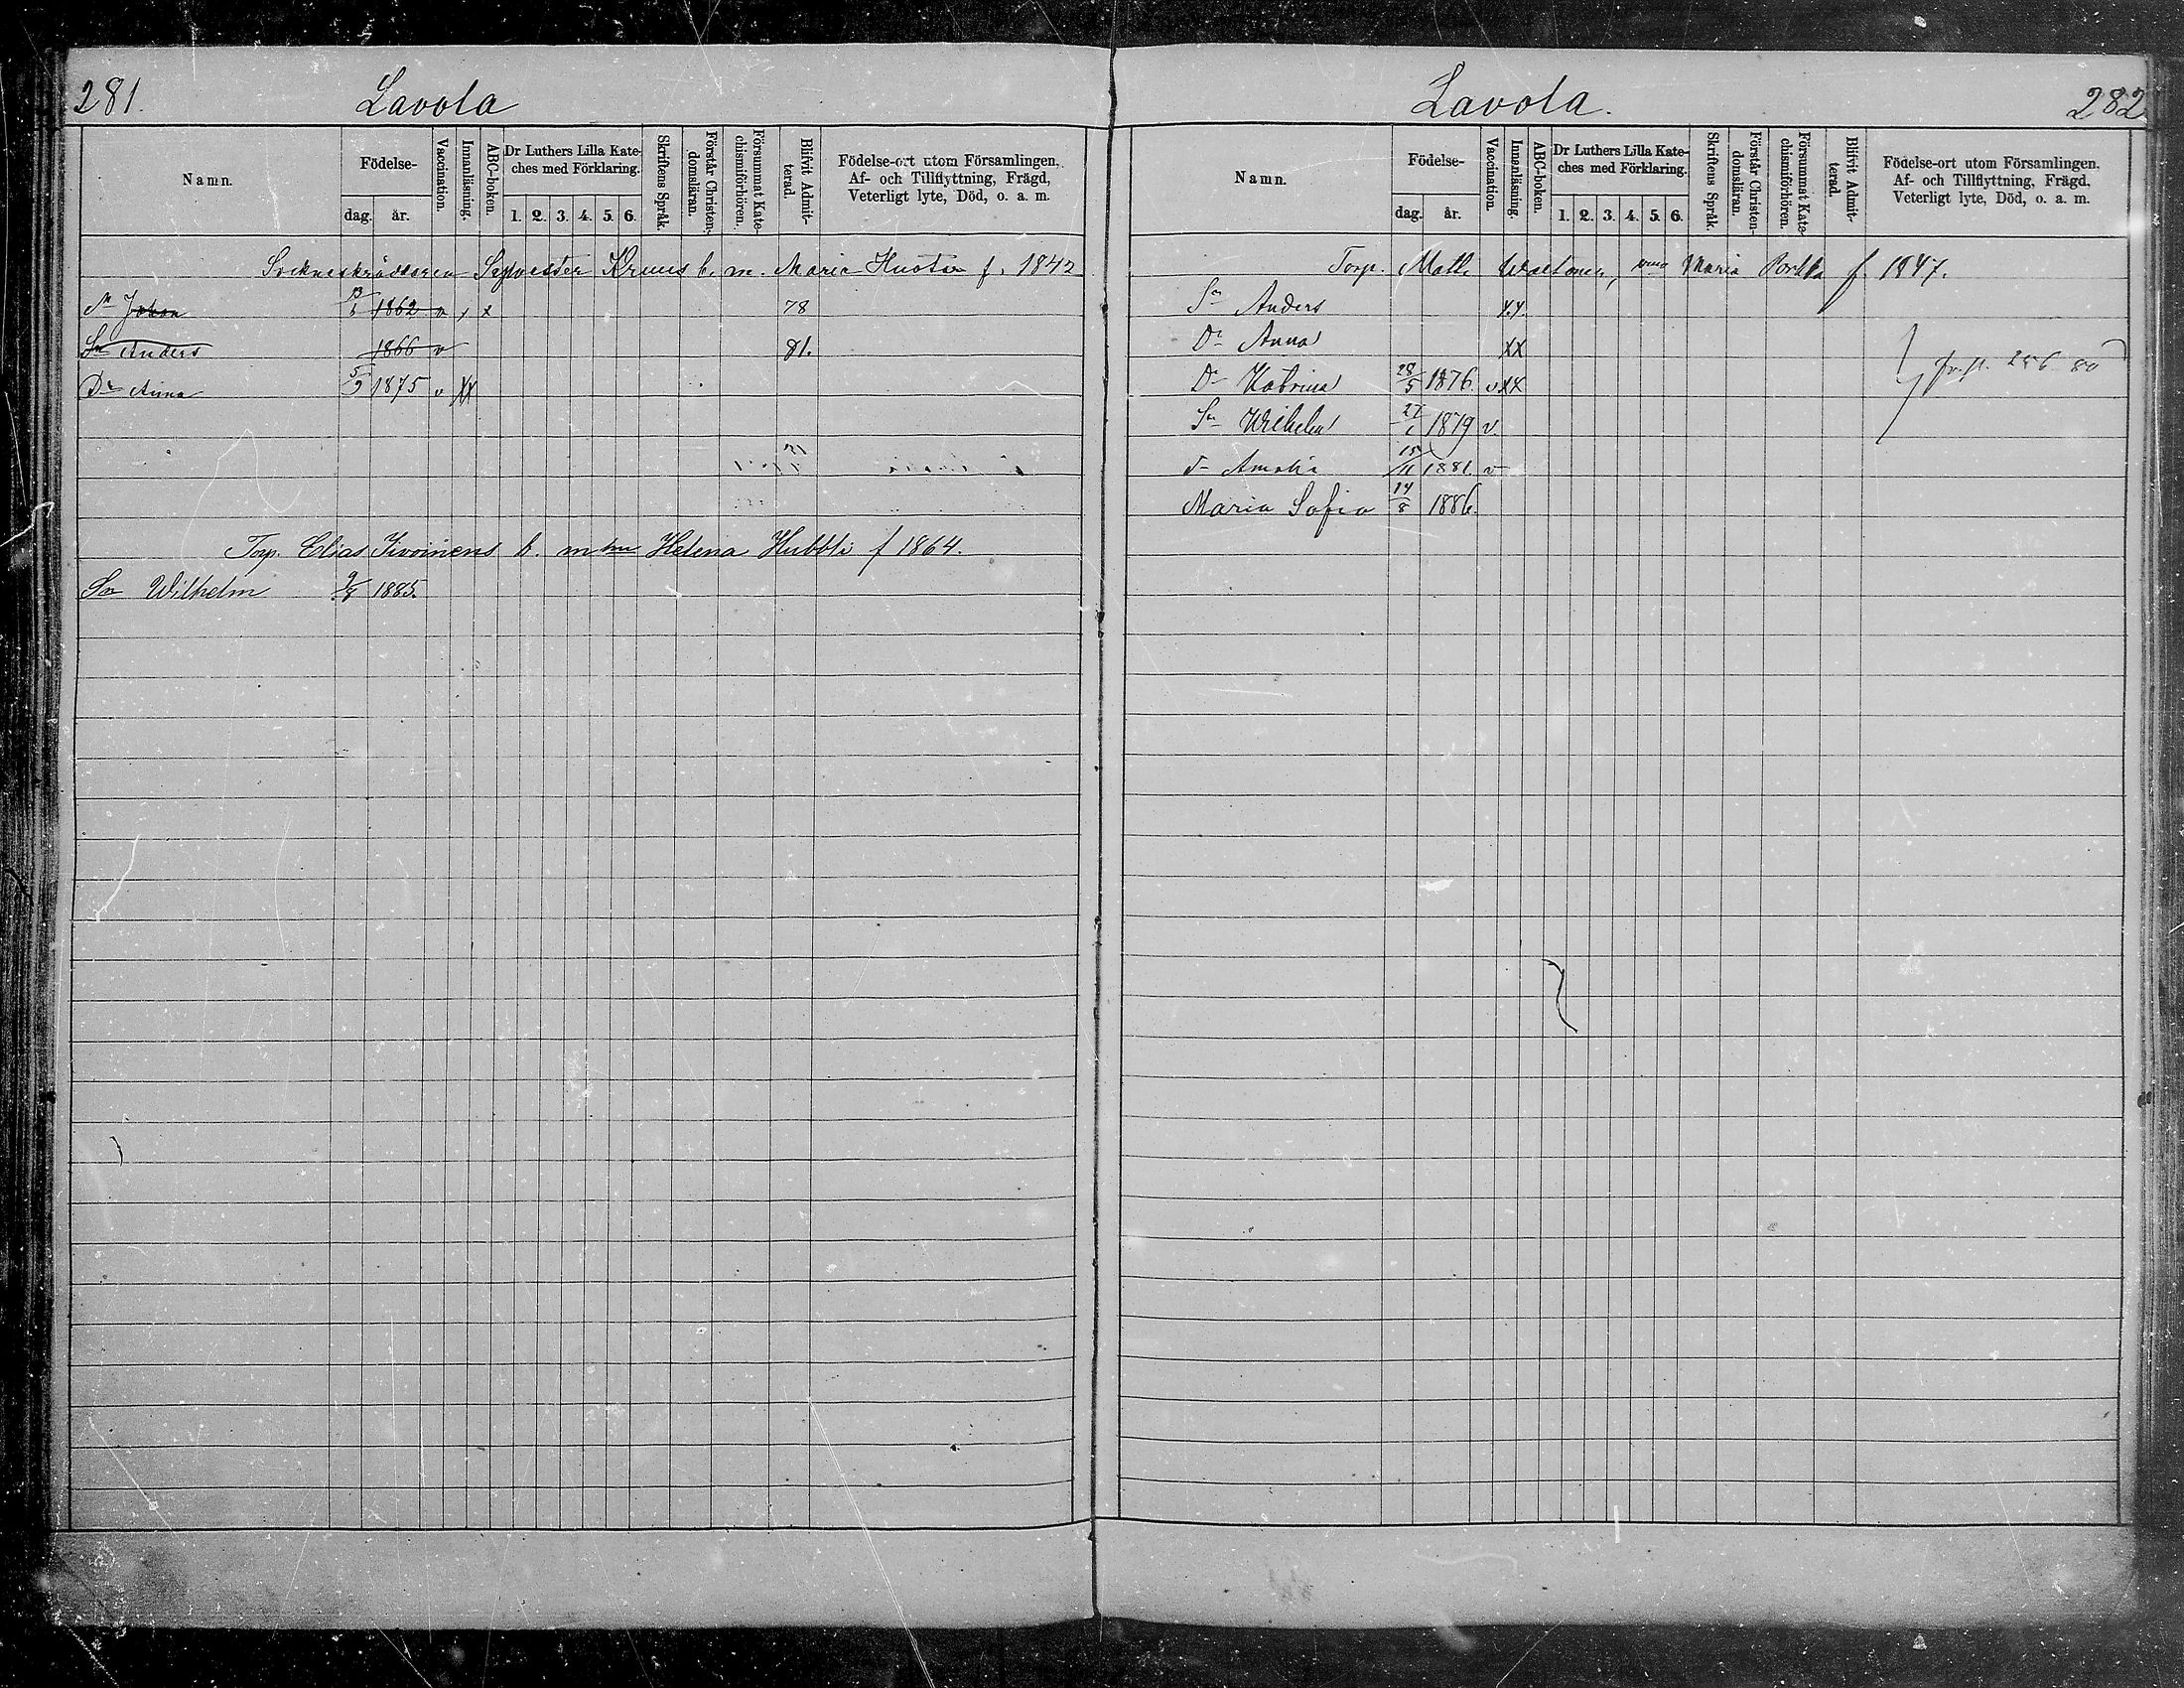 281.
Lavola
Namn.
Födelse-
dag.
år.
Vaccination.
Innanläsning.
ABC-boken.
Dr Luthers Lilla Kate-
ches med Förklaring.
1. 2. 3. 4. 5. 6.
Skriftens Språk.
Förstår Christen-
domsläran.
Försummat Kate-
chismiförhören.
Blifvit Admit-
terad.
Födelse-ort utom Församlingen.
Af- och Tillflyttning, Frägd,
Veterligt lyte, Död, o. a. m.
Sockneskräddaren Sylvester b. m. Maria f. 1842
Sn Johan 1862 v x 78
Sn Anders 1866 v 81.
Dr Anna 5/9 1875 v XX
Torp. Elias Kivoinens b. m hu Helena Hubbli f 1864.
Son Wilhelm 1885.
Lavola.
282
Namn.
Födelse-
dag.
år.
Vaccination.
Innanläsning.
ABC-boken.
Dr Luthers Lilla Kate-
ches med Förklaring.
1. 2. 3. 4. 5. 6.
Skriftens Språk.
Förstår Christen-
domsläran.
Försummat Kate-
chismiförhören.
Blifvit Admit-
terad.
Födelse-ort utom Församlingen.
Af- och Tillflyttning, Frägd,
Veterligt lyte, Död, o. a. m.
Torp. Matts Maria f 1847.
Sn Anders x.x.
Dr Anna xx
Dr Katrina 28/5 1876. v xx
Sn Wilhelm 1879 v.
d- Amalia 15/11 1881. v
Maria Sofia 14/8 1886.
fr. p. 256 80